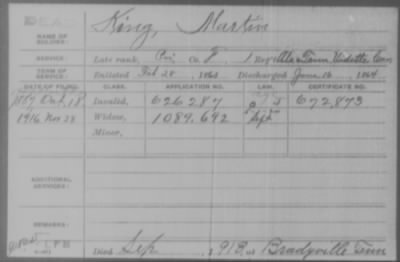 DEAD
King, Martin
NAME OF SOLDIER:
SERVICE: Late rank, Pri Co. F, 1 Reg't Ala & Tenn Vidette Cav
TERM OF SERVICE: Enlisted Feb 28, 1863 Discharged June 16, 1864
DATE OF FILING. CLASS. APPLICATION NO. LAW. CERTIFICATE NO.
1887 Oct 18 Invalid, 626,287 672,873
1916 Nov 28 Widow, 1089,692 Sept
Minor,
ADDITIONAL SERVICES:
REMARKS:
Died Sep , 1913, at Bradyville Tenn